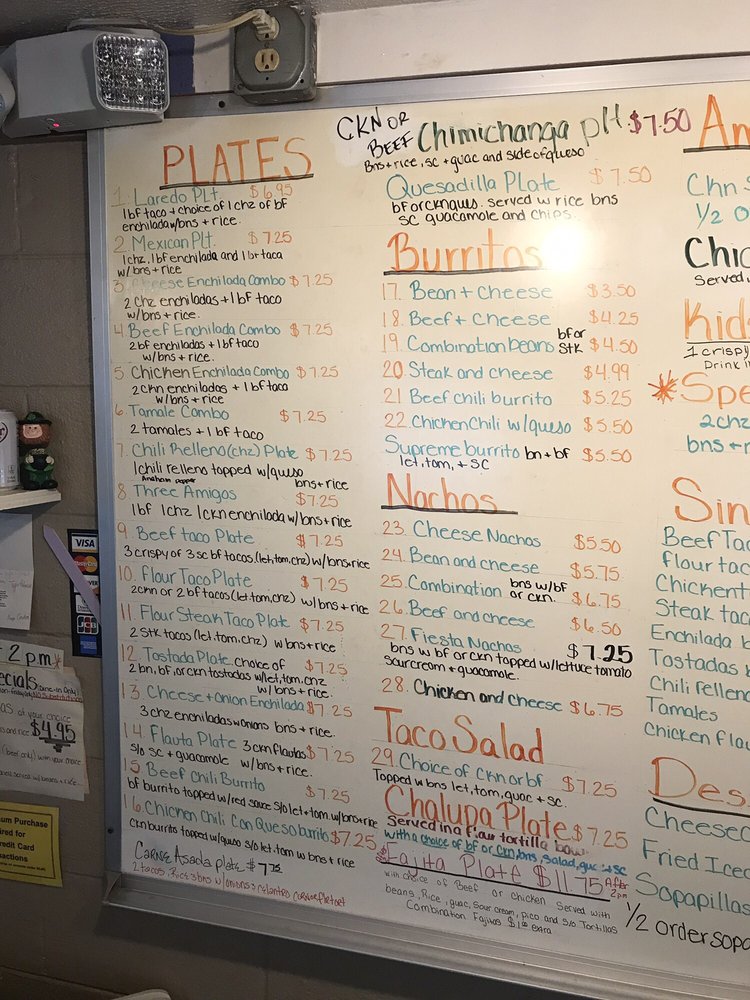 PLATES
1. Laredo Plt $6.95
1 bf taco + choice of 1 chz of bf
enchilada w/bns + rice.
2 Mexican Plt. $7.25
1 chz, 1 bf enchilada and 1 bf taco
w/ bns + rice
3. Cheese Enchilada Combo $7.25
2 chz enchiladas + 1 bf taco
w/bns + rice.
4 Beef Enchilada Combo $7.25
2 bf enchiladas + 1 bf taco
w/bns + rice.
5 Chicken Enchilada Combo $7.25
2 ckn enchiladas + 1 bf taco
w/bns + rice
6 Tamale Combo $7.25
2 tamales + 1 bf taco
7. Chili Relleno (chz) Plate $7.25
1 chili relleno topped w/queso
bns + rice
8. Three Amigos $7.25
1 bf 1 chz 1 ckn enchilada w/bns + rice
9. Beef taco Plate $7.25
3 crispy of 3 sc bf tacos, (let, tom, chz) w/bns + rice
10. Flour Taco Plate $7.25
2 ckn or 2 bf tacos (let, tom, chz) w/ bns + rice
11. Flour Steak Taco Plate $7.25
2 Stk tacos (let, tom, chz) w/ bns + rice
12. Tostada Plate choice of $7.25
2 bn, bf, or ckn tostadas w/let, tom, chz
w/ bns + rice.
13 Cheese + Onion Enchilada $7.25
3 chz enchiladas w onions bns + rice.
14. Flauta Plate 3 ckn flautas $7.25
s/o sc + guacamole w/ bns + rice.
15. Beef Chili Burrito $7.25
bf burrito topped w/red sauce s/o let + tom. w/bns + rice
16. Chicken Chili Con Queso burrito $7.25
Ckn burrito topped w/queso s/o let, tom w bns + rice
Carne Asada plate $7.25
CKN OR
BEEF Chimichanga plt $7.50
Bns + rice, sc + guac and side of queso
Quesadilla Plate $7.50
bf or ckn ques. served w rice bns
SC guacamole and chips.
Burritos
17. Bean + Cheese $3.50
18. Beef + Cheese $4.25
19. Combination beans bf or
stk $4.50
20 Steak and cheese $4.99
21 Beef chili burrito $5.25
22 Chicken Chili w/queso $5.50
Supreme burrito bn + bf $5.50
let, tom, + SC
Nachos
23. Cheese Nachos $5.50
24. Bean and cheese $5.75
25. Combination bns w/bf
or ckn. $6.75
26. Beef and cheese $6.50
27. Fiesta Nachos $7.25
bns w bf or ckn topped w/lettuce tomato
sour cream + guacamole.
28. Chicken and cheese $6.75
Taco Salad
29. Choice of Ckn or bf $7.25
Topped w bns let, tom, guac + sc.
Chalupa Plate $7.25
Served in a flour tortilla bowl
with a choice of bf or ckn, bns, salad, guc + sc
Fajita Plate $11.75 After
2pm
with choice of Beef or chicken Served with
beans, Rice, guac, Sour cream, pico and s/o Tortillas
Combination Fajitas $1.00 extra
An
Ckn S
1/2 O
Chic
Served in
Kids
1 crispy
Drink i
*Spe
2 chz
bns + r
Sin
Beef Tac
flour tac
Chicken t
Steak tac
Enchilada b
Tostadas b
Chili rellen
Tamales
Chicken flau
Des
Cheesec
Fried Ice
Sopapillas
1/2 order sopa
VISA
MasterCard
JCB
2 pm
cials
$4.95
um Purchase
ired for
redit Card
actions